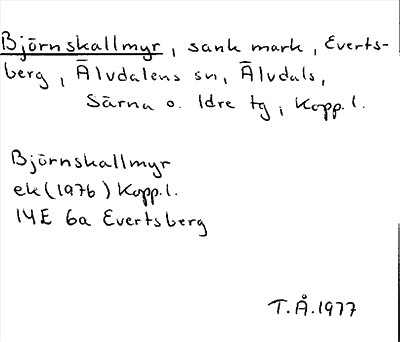 Björnskallmyr, sank mark, Everts-
berg, Älvdalens sn, Älvdals,
Särna o. Idre tg, Kopp. l.
Björnskallmyr
ek (1976) Kopp. l.
14E 6a Evertsberg
T.Å. 1977